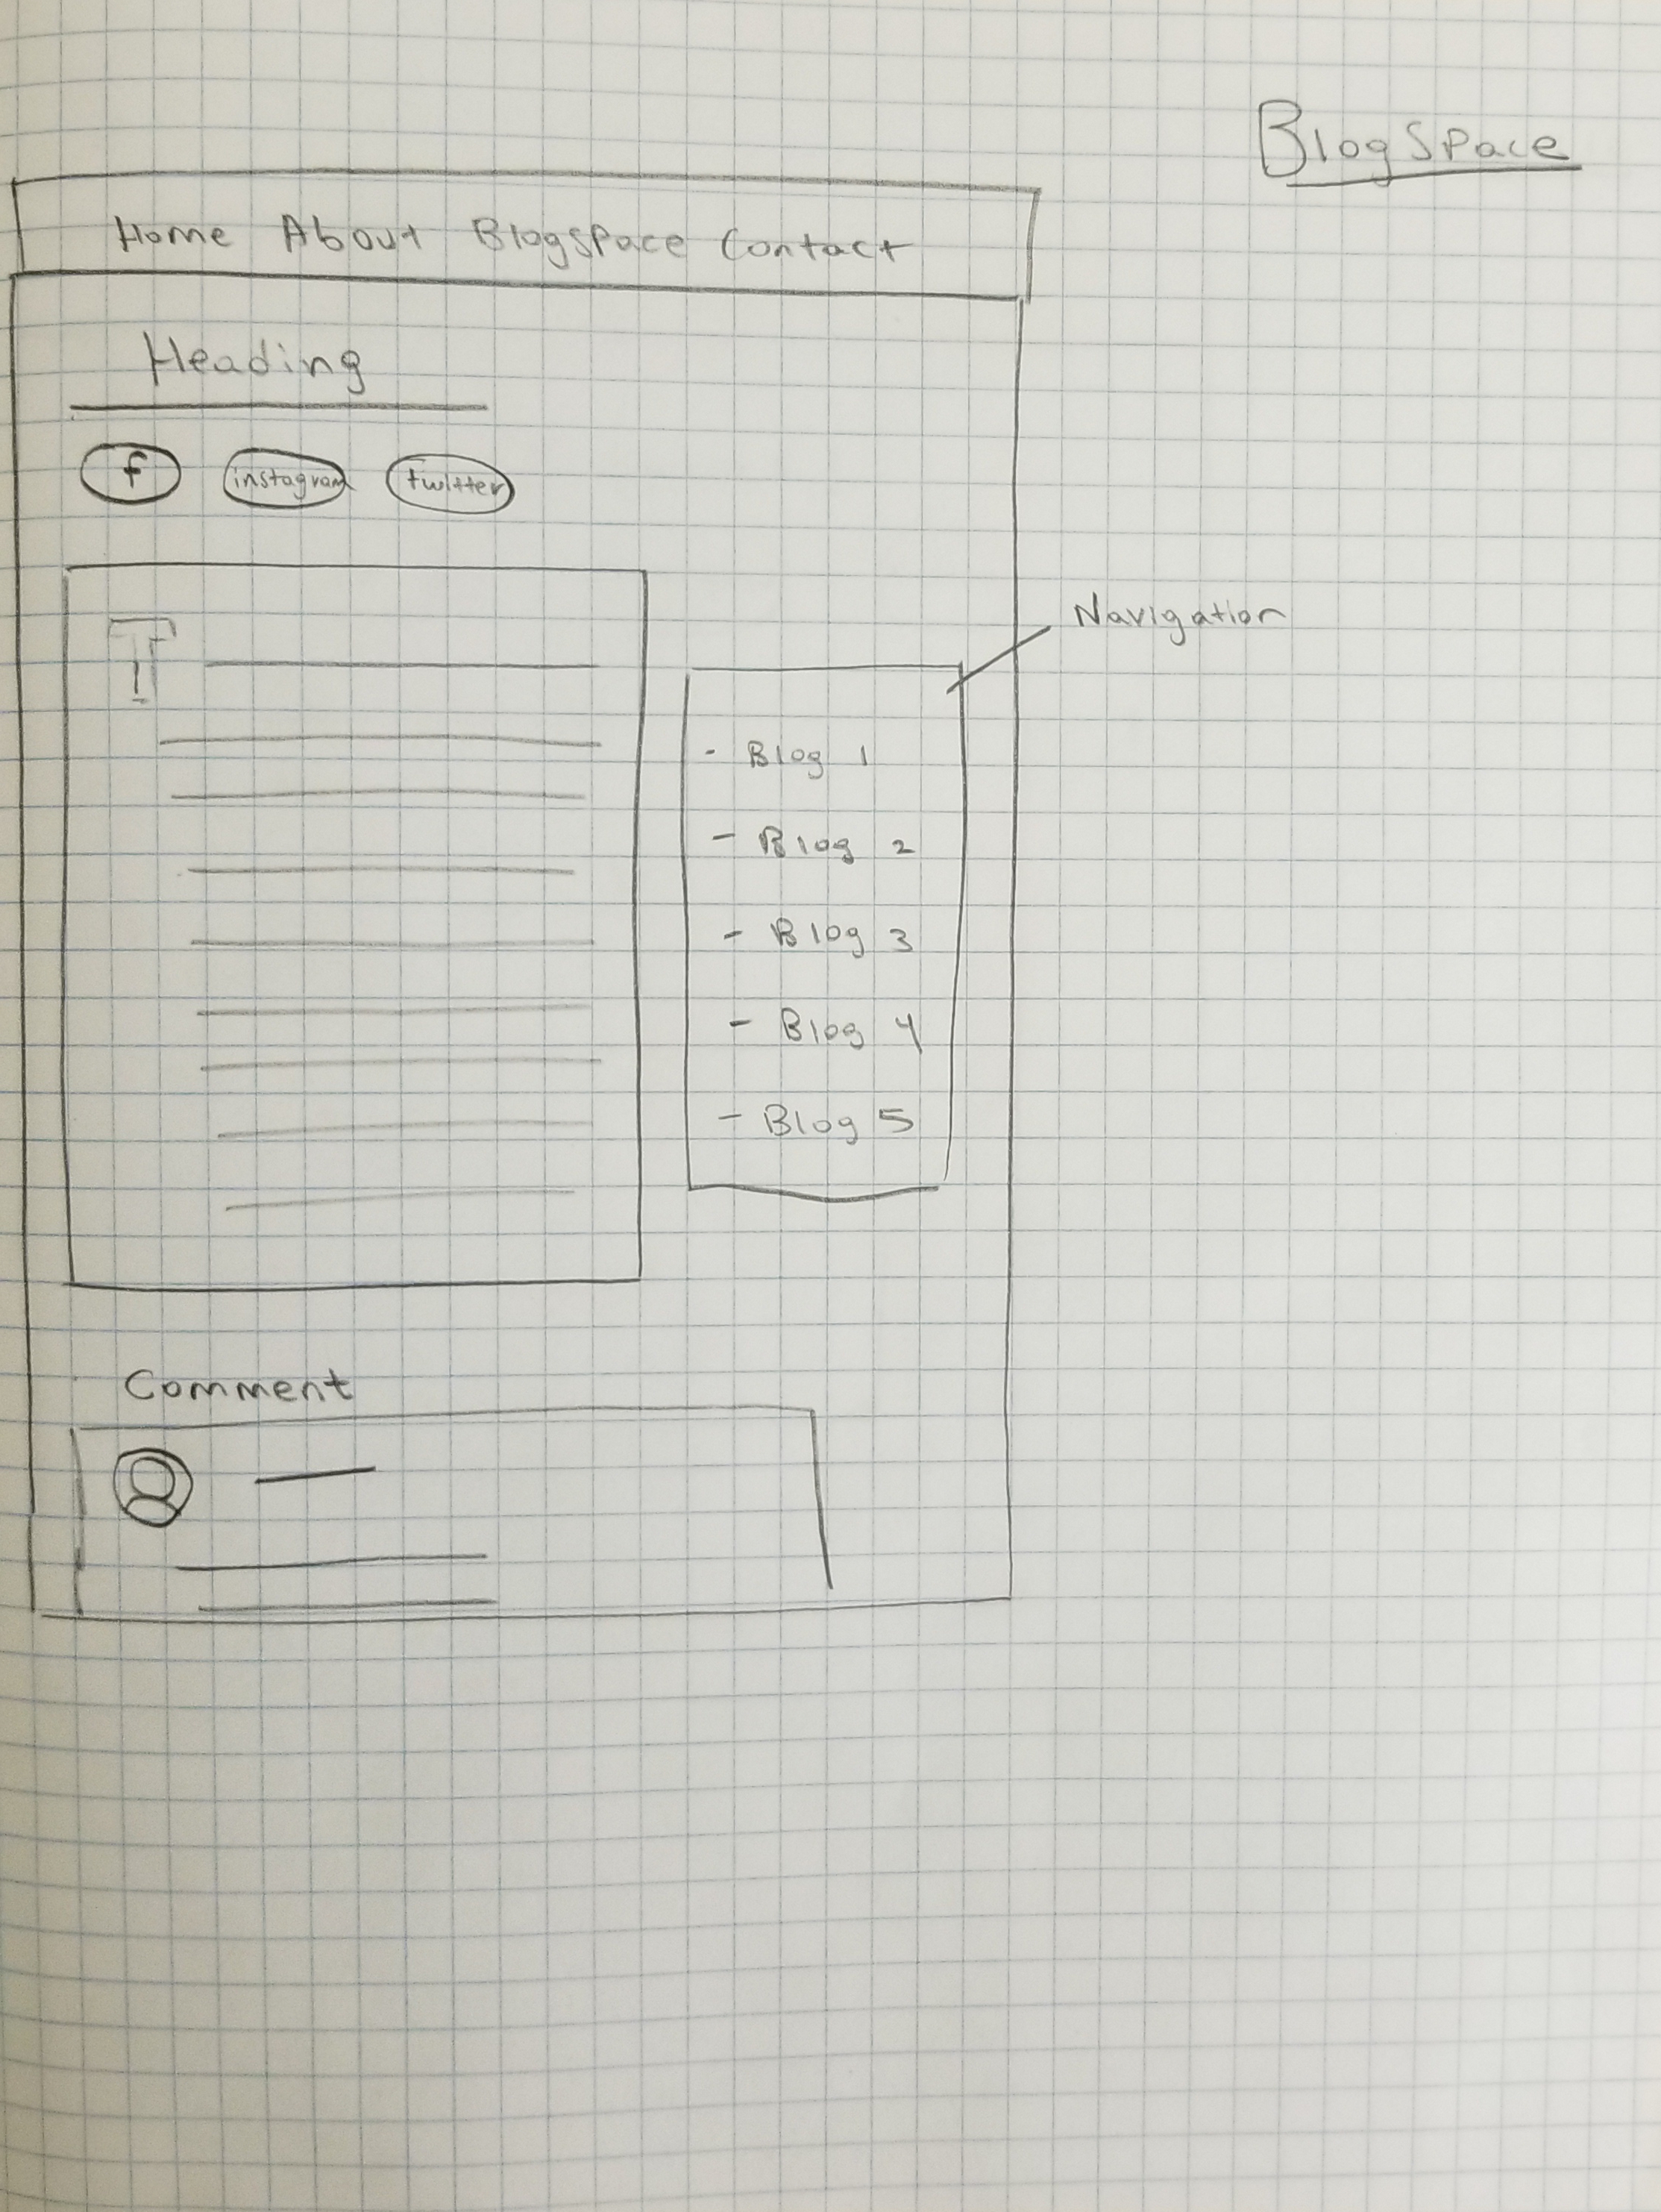 BlogSpace
Home About Blogspace Contact
Heading
f instagram twitter
T
Navigation
- Blog 1
- Blog 2
- Blog 3
- Blog 4
- Blog 5
Comment